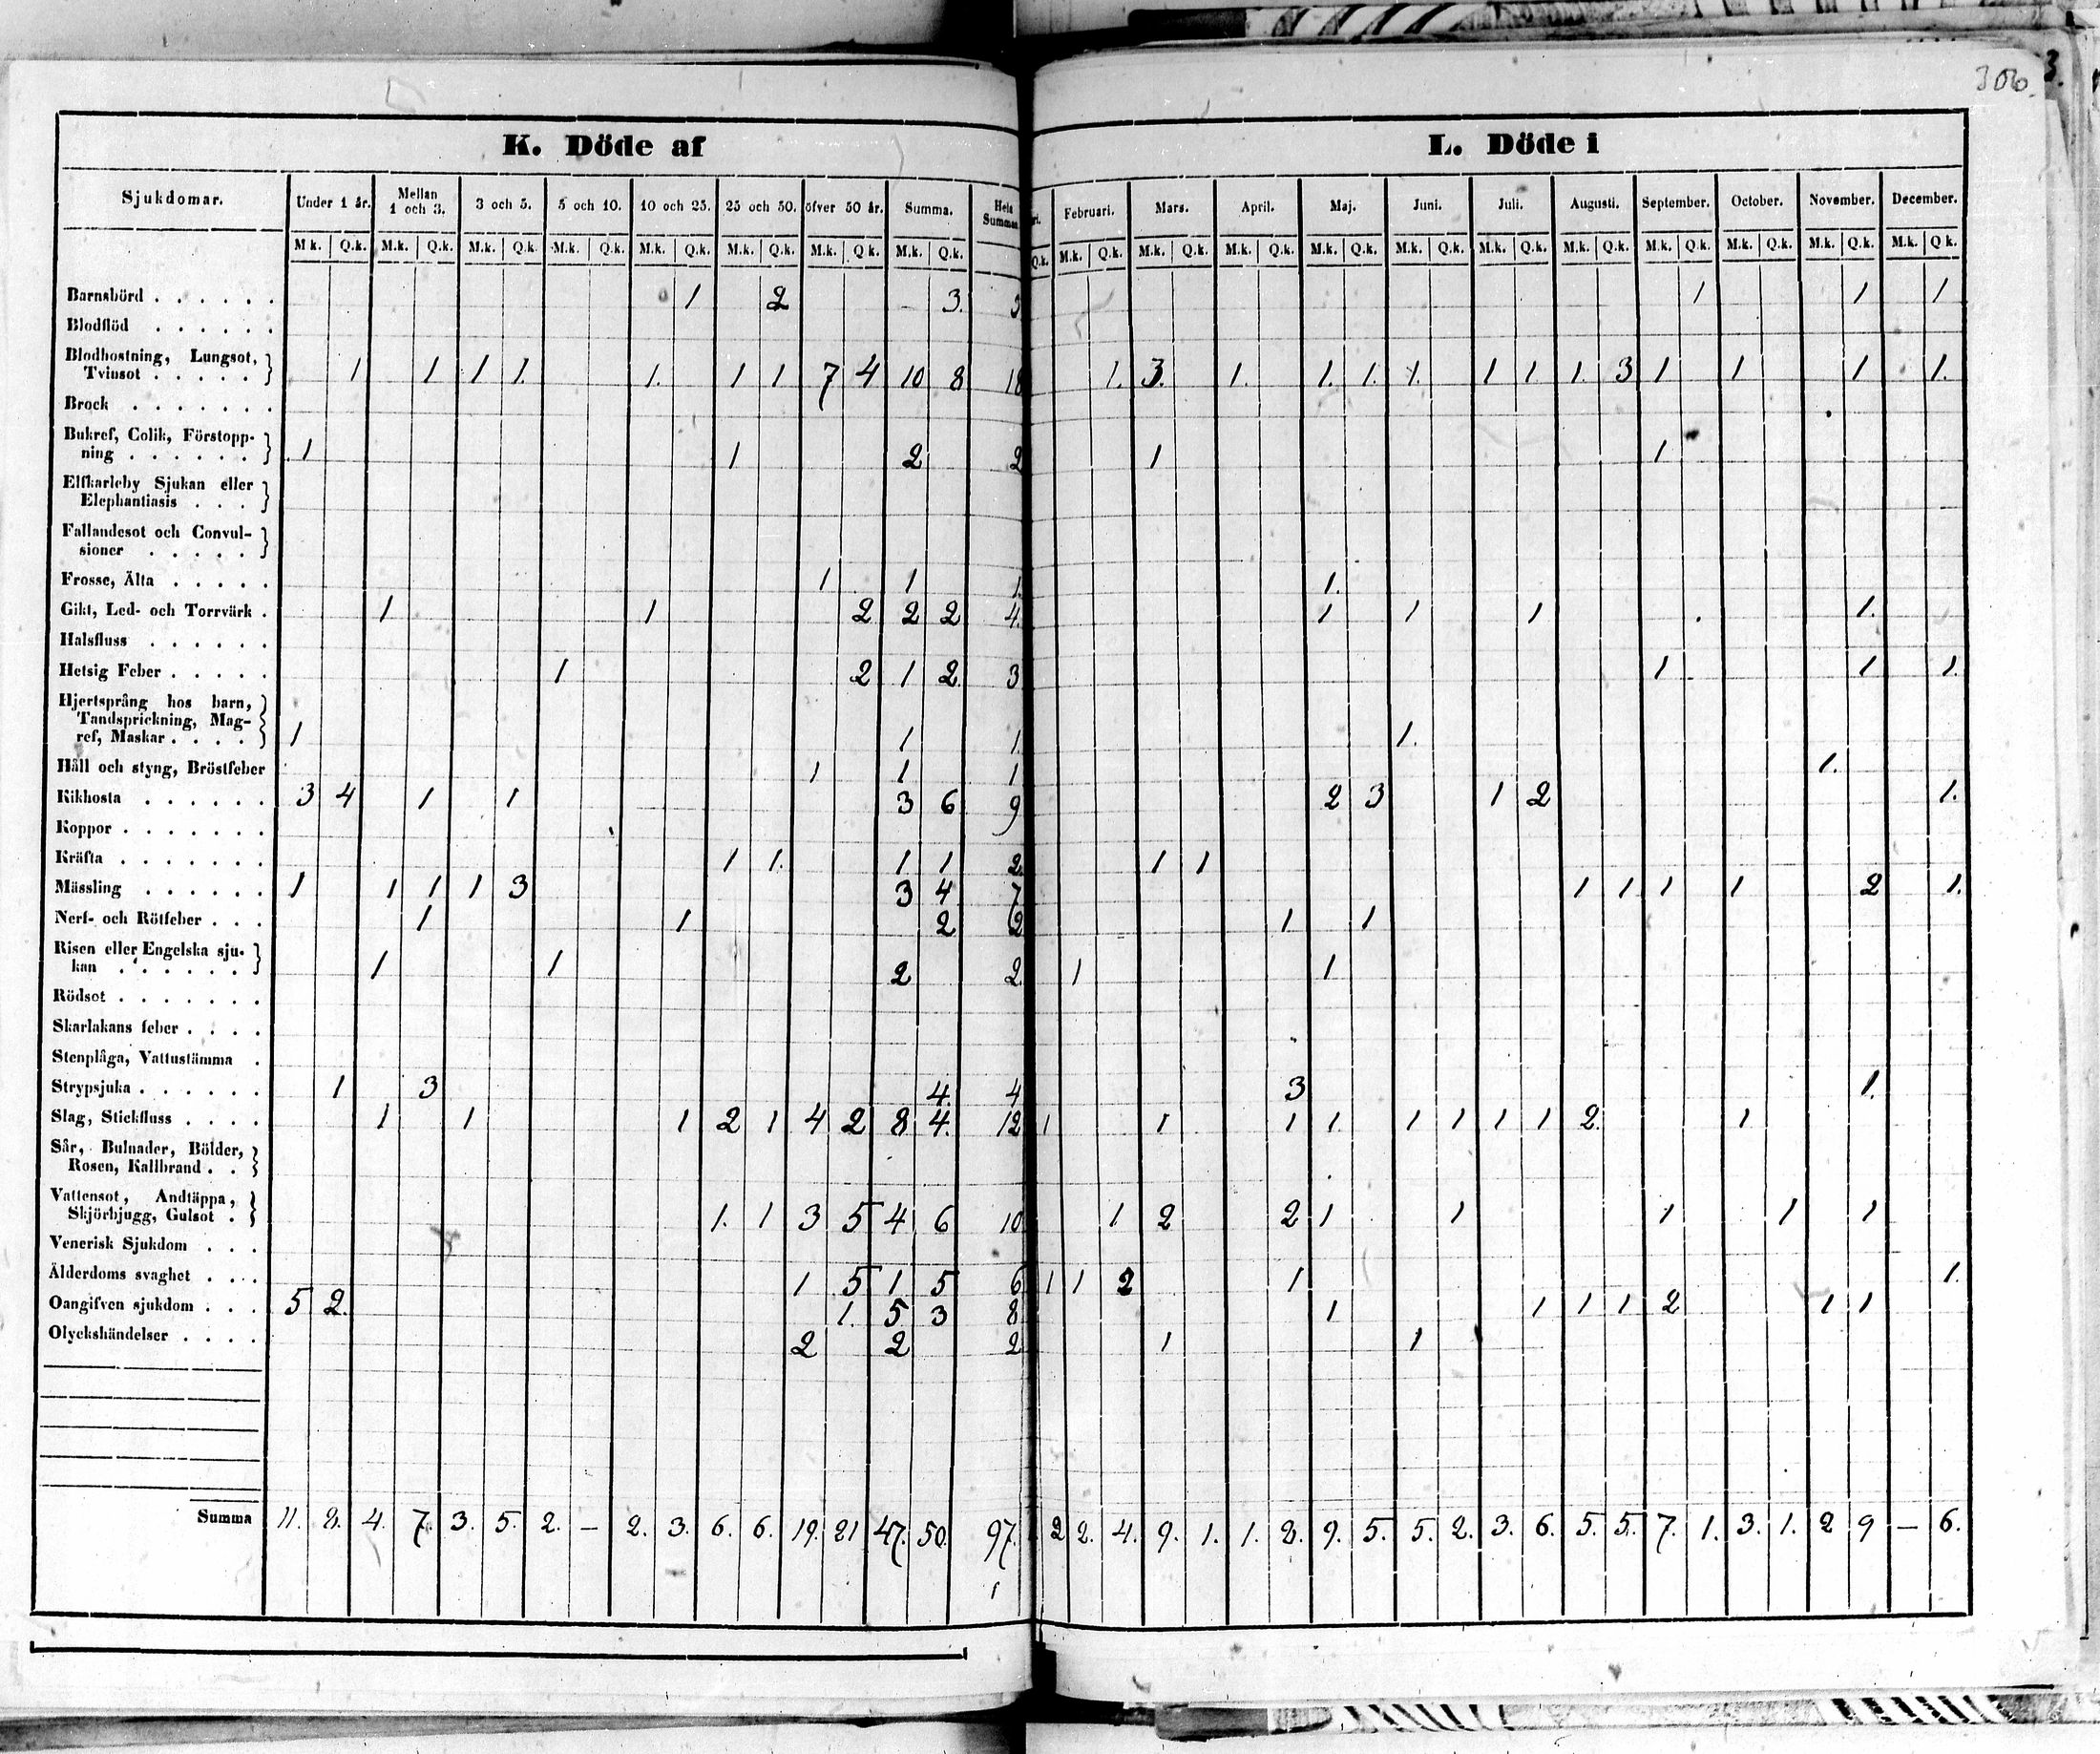 306.
3.
K. Döde af
L. Döde i
Sjukdomar. Under 1 år. Mellan 1 och 3. 3 och 5. 5 och 10. 10 och 25. 25 och 50. öfver 50 år. Summa. Hela Summan Februari. Mars. April. Maj. Juni. Juli. Augusti. September. October. November. December.
M.k. Q.k. M.k. Q.k. M.k. Q.k. M.k. Q.k. M.k. Q.k. M.k. Q.k. M.k. Q.k. M.k. Q.k. Q.k. M.k. Q.k. M.k. Q.k. M.k. Q.k. M.k. Q.k. M.k. Q.k. M.k. Q.k. M.k. Q.k. M.k. Q.k. M.k. Q.k. M.k. Q.k. M.k. Q.k.
Barnsbörd . . . . . . 1 2 3. 3 1 1 1
Blodflöd . . . . . .
Blodhostning, Lungsot,
Tvinsot . . . . . 1 1 1 1. 1. 1 1 7 4 10 8 18 1. 3. 1. 1. 1. 1. 1 1 1. 3 1 1 1 1.
Brock . . . . . . .
Bukref, Colik, Förstopp-
ning . . . . . . 1 1 2 2 1 1
Elfkarleby Sjukan eller
Elephantiasis . . .
Fallandesot och Convul-
sioner . . . . .
Frosse, Älta . . . . . 1 1 1. 1.
Gikt, Led- och Torrvärk . 1 1 2 2 2 4. 1 1 1 1.
Halsfluss . . . . . .
Hetsig Feber . . . . . 1 2 1 2. 3 1 1 1.
Hjertsprång hos barn,
Tandsprickning, Mag-
ref, Maskar . . . . 1 1 1. 1.
Håll och styng, Bröstfeber 1 1 1 1.
Kikhosta . . . . . . 3 4 1 1 3 6 9 2 3 1 2 1.
Koppor . . . . . . .
Kräfta . . . . . . . 1 1. 1 1 2 1 1
Mässling . . . . . . 1 1 1 1 3 3 4 7 1 1 1 1 2 1.
Nerf- och Rötfeber . . . 1 1 2 2 1 1
Risen eller Engelska sju-
kan . . . . . . 1 1 2 2 1 1
Rödsot . . . . . . .
Skarlakans feber . . . .
Stenplåga, Vattustämma .
Strypsjuka . . . . . . 1 3 4. 4 3 1.
Slag, Stickfluss . . . . 1 1 1 2 1 4 2 8 4. 12 1 1 1 1 1 1 1 1 2. 1
Sår, Bulnader, Bölder,
Rosen, Kallbrand . .
Vattensot, Andtäppa,
Skjörbjugg, Gulsot . 1. 1 3 5 4 6 10 1 2 2 1 1 1 1 1
Venerisk Sjukdom . . .
Ålderdoms svaghet . . . 1 5 1 5 6 1 1 2 1 1.
Oangifven sjukdom . . . 5 2. 1. 5 3 8 1 1 1 1 2 1 1
Olyckshändelser . . . . 2 2 2 1 1
Summa 11. 8. 4. 7. 3. 5. 2. — 2. 3. 6. 6. 19. 21 47. 50. 97. 2 2. 4. 9. 1. 1. 8. 9. 5. 5. 2. 3. 6. 5. 5. 7. 1. 3. 1. 2 9 — 6.